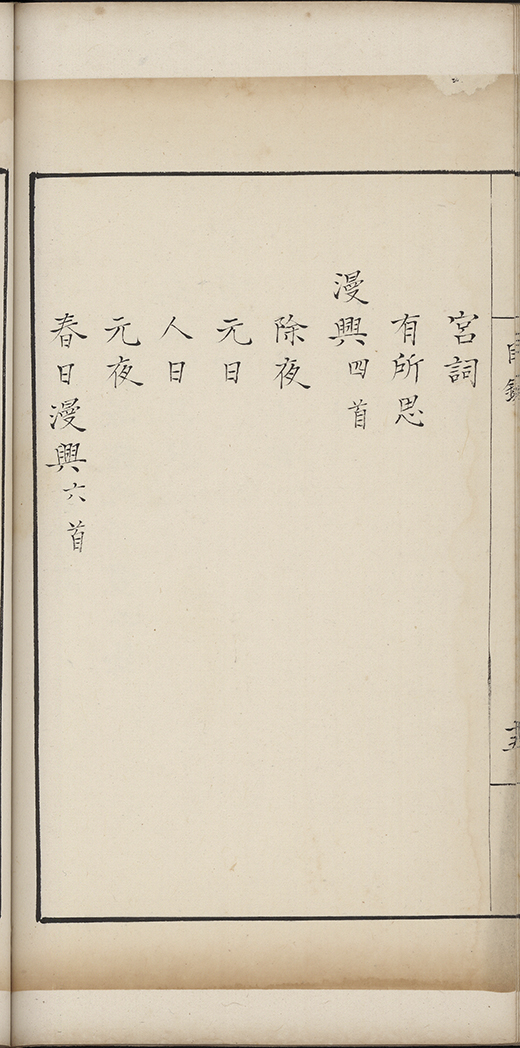 宮詞
有所思
漫興四首
除夜
元日
人日
元夜
春日漫興六首
目錄